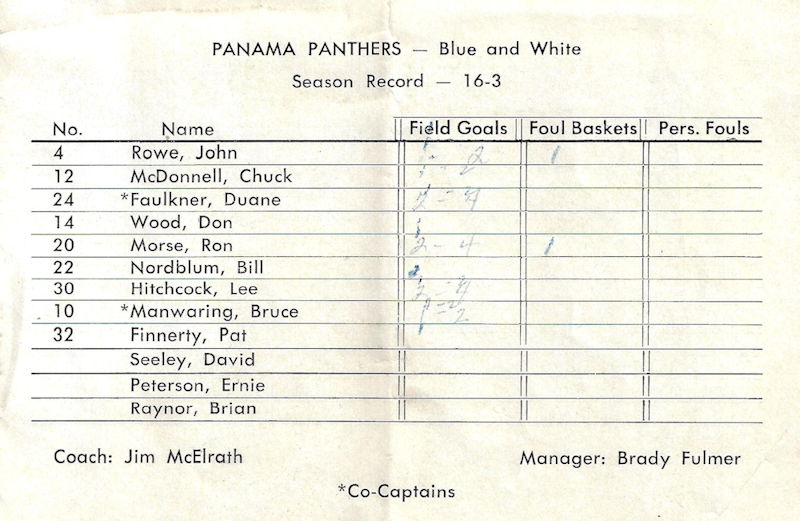 PANAMA PANTHERS — Blue and White
Season Record — 16-3
No. Name Field Goals Foul Baskets Pers. Fouls
4 Rowe, John 2 1
12 McDonnell, Chuck
24 *Faulkner, Duane
14 Wood, Don
20 Morse, Ron 2 - 4 1
22 Nordblum, Bill
30 Hitchcock, Lee
10 *Manwaring, Bruce
32 Finnerty, Pat
Seeley, David
Peterson, Ernie
Raynor, Brian
Coach: Jim McElrath Manager: Brady Fulmer
*Co-Captains